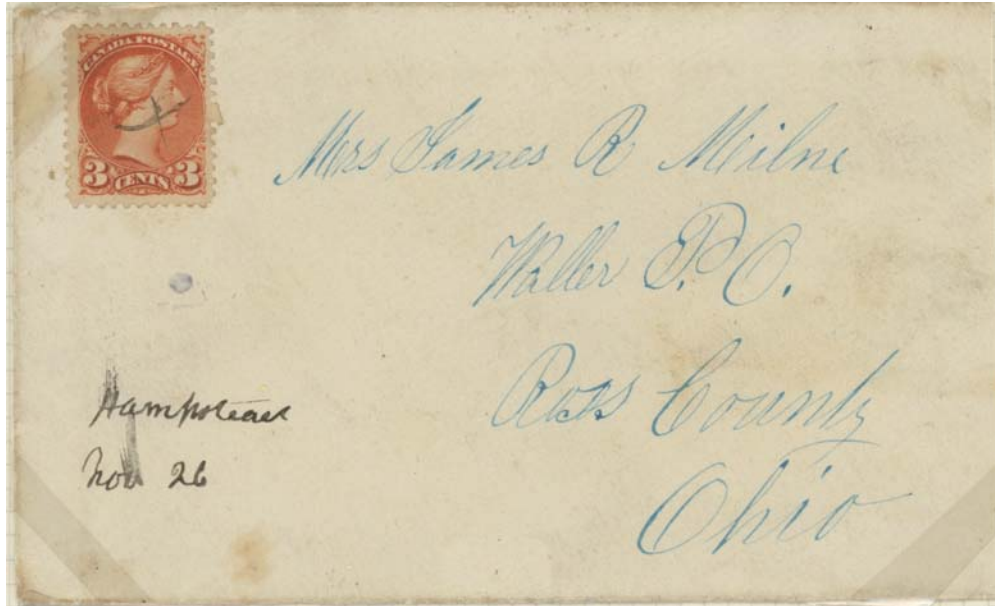 CANADA POSTAGE
3 CENTS 3
Mrs James R Milne
Waller P.O.
Ross County
Ohio
Hampstead
Nov 26